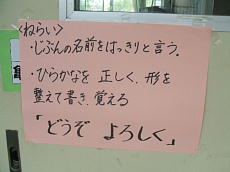 <ねらい>
・じぶんの名前をはっきりと言う。
・ひらがなを 正しく、形を
整えて書き、覚える
「どうぞ よろしく」